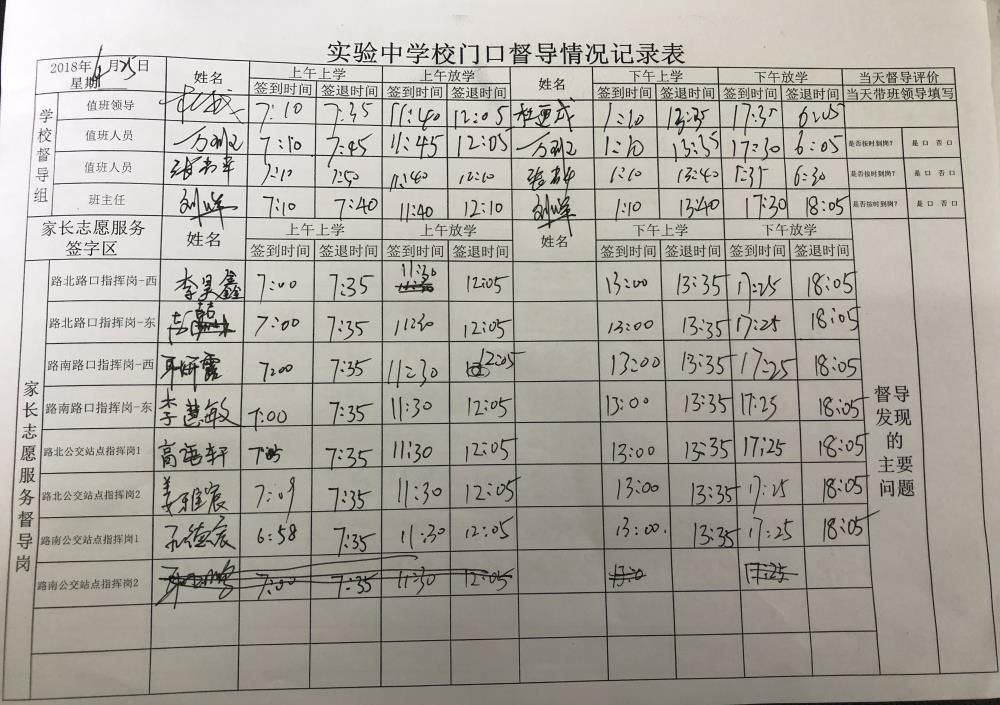 实验中学校门口督导情况记录表
2018年6月25日
星期
姓名 上午上学 上午放学 姓名 下午上学 下午放学 当天督导评价
签到时间 签退时间 签到时间 签退时间 签到时间 签退时间 签到时间 签退时间 当天带班领导填写
学校督导组
值班领导 7:10 7:35 11:40 12:05 1:10 13:35 17:35 6:05
值班人员 7:10 7:45 11:45 12:05 1:10 13:35 17:30 6:05 是否按时到岗? 是口 否口
值班人员 7:10 7:50 11:40 12:10 1:10 13:40 5:35 6:30 是否按时到岗? 是口 否口
班主任 7:10 7:40 11:40 12:10 1:10 13:40 17:30 18:05 是否按时到岗? 是口 否口
家长志愿服务签字区 姓名 上午上学 上午放学 姓名 下午上学 下午放学
签到时间 签退时间 签到时间 签退时间 签到时间 签退时间 签到时间 签退时间
家长志愿服务督导岗
路北路口指挥岗-西 李昊鑫 7:00 7:35 11:30 12:05 13:00 13:35 17:25 18:05
路北路口指挥岗-东 7:00 7:35 11:30 12:05 13:00 13:35 17:25 18:05
路南路口指挥岗-西 7:00 7:35 11:30 12:05 13:00 13:35 17:25 18:05
路南路口指挥岗-东 李慧敏 7:00 7:35 11:30 12:05 13:00 13:35 17:25 18:05
路北公交站点指挥岗1 高语轩 7:05 7:35 11:30 12:05 13:00 13:35 17:25 18:05
路北公交站点指挥岗2 姜雅宸 7:09 7:35 11:30 12:05 13:00 13:35 17:25 18:05
路南公交站点指挥岗1 孔德宸 6:58 7:35 11:30 12:05 13:00 13:35 17:25 18:05
路南公交站点指挥岗2 7:00 7:35 11:30 12:05 17:25
督导发现的主要问题